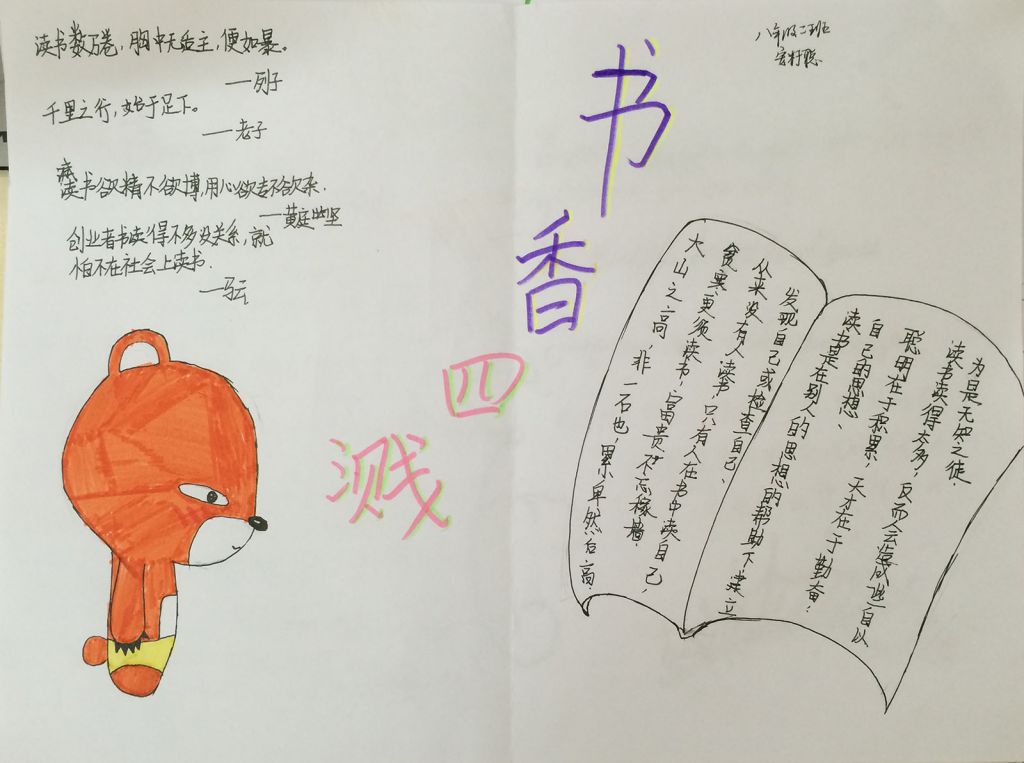 读书数万卷，胸中无适主，便如暴。
—列子
千里之行，始于足下。
—老子
读书欲精不欲博，用心欲专不欲杂.
—黄庭坚
创业者书读得不多没关系，就
怕不在社会上读书.
—马云
书香四溅
八年级二班
为是无穷之徒.
读书读得太多，反而会造成些自以
聪明在于积累，天才在于勤奋，
自己的思想、
读书是在别人的思想的帮助下，建立
发现自己或检查自己、
从来没有人读书，只有人在书中读自己，
贫寒更须读书，富贵不忘稼穑.
大山之高，非一石也，累卑然后高.